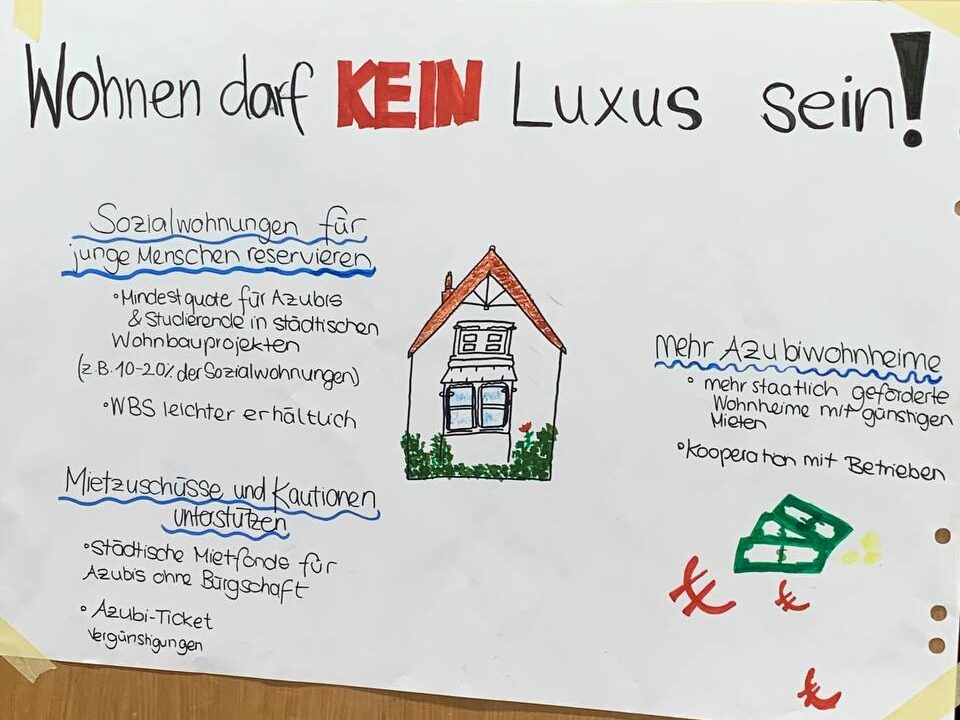 Wohnen darf KEIN Luxus sein!
Sozialwohnungen für
junge Menschen reservieren
• Mindestquote für Azubis
& Studierende in städtischen
Wohnbauprojekten
(z.B. 10-20% der Sozialwohnungen)
• WBS leichter erhältlich
Mietzuschüsse und Kautionen
unterstützen
• städtische Mietfonds für
Azubis ohne Bürgschaft
• Azubi-Ticket
Vergünstigungen
mehr Azubiwohnheime
• mehr staatlich geförderte
Wohnheime mit günstigen
Mieten
• Kooperation mit Betrieben
$
€
€
€